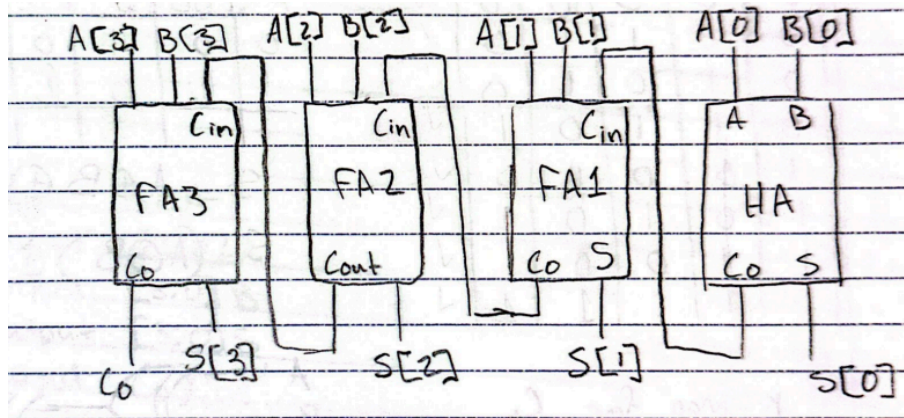 A[3] B[3] A[2] B[2] A[1] B[1] A[0] B[0]
Cin Cin Cin A B
FA3 FA2 FA1 HA
Co Cout Co S Co S
Co S[3] S[2] S[1] S[0]